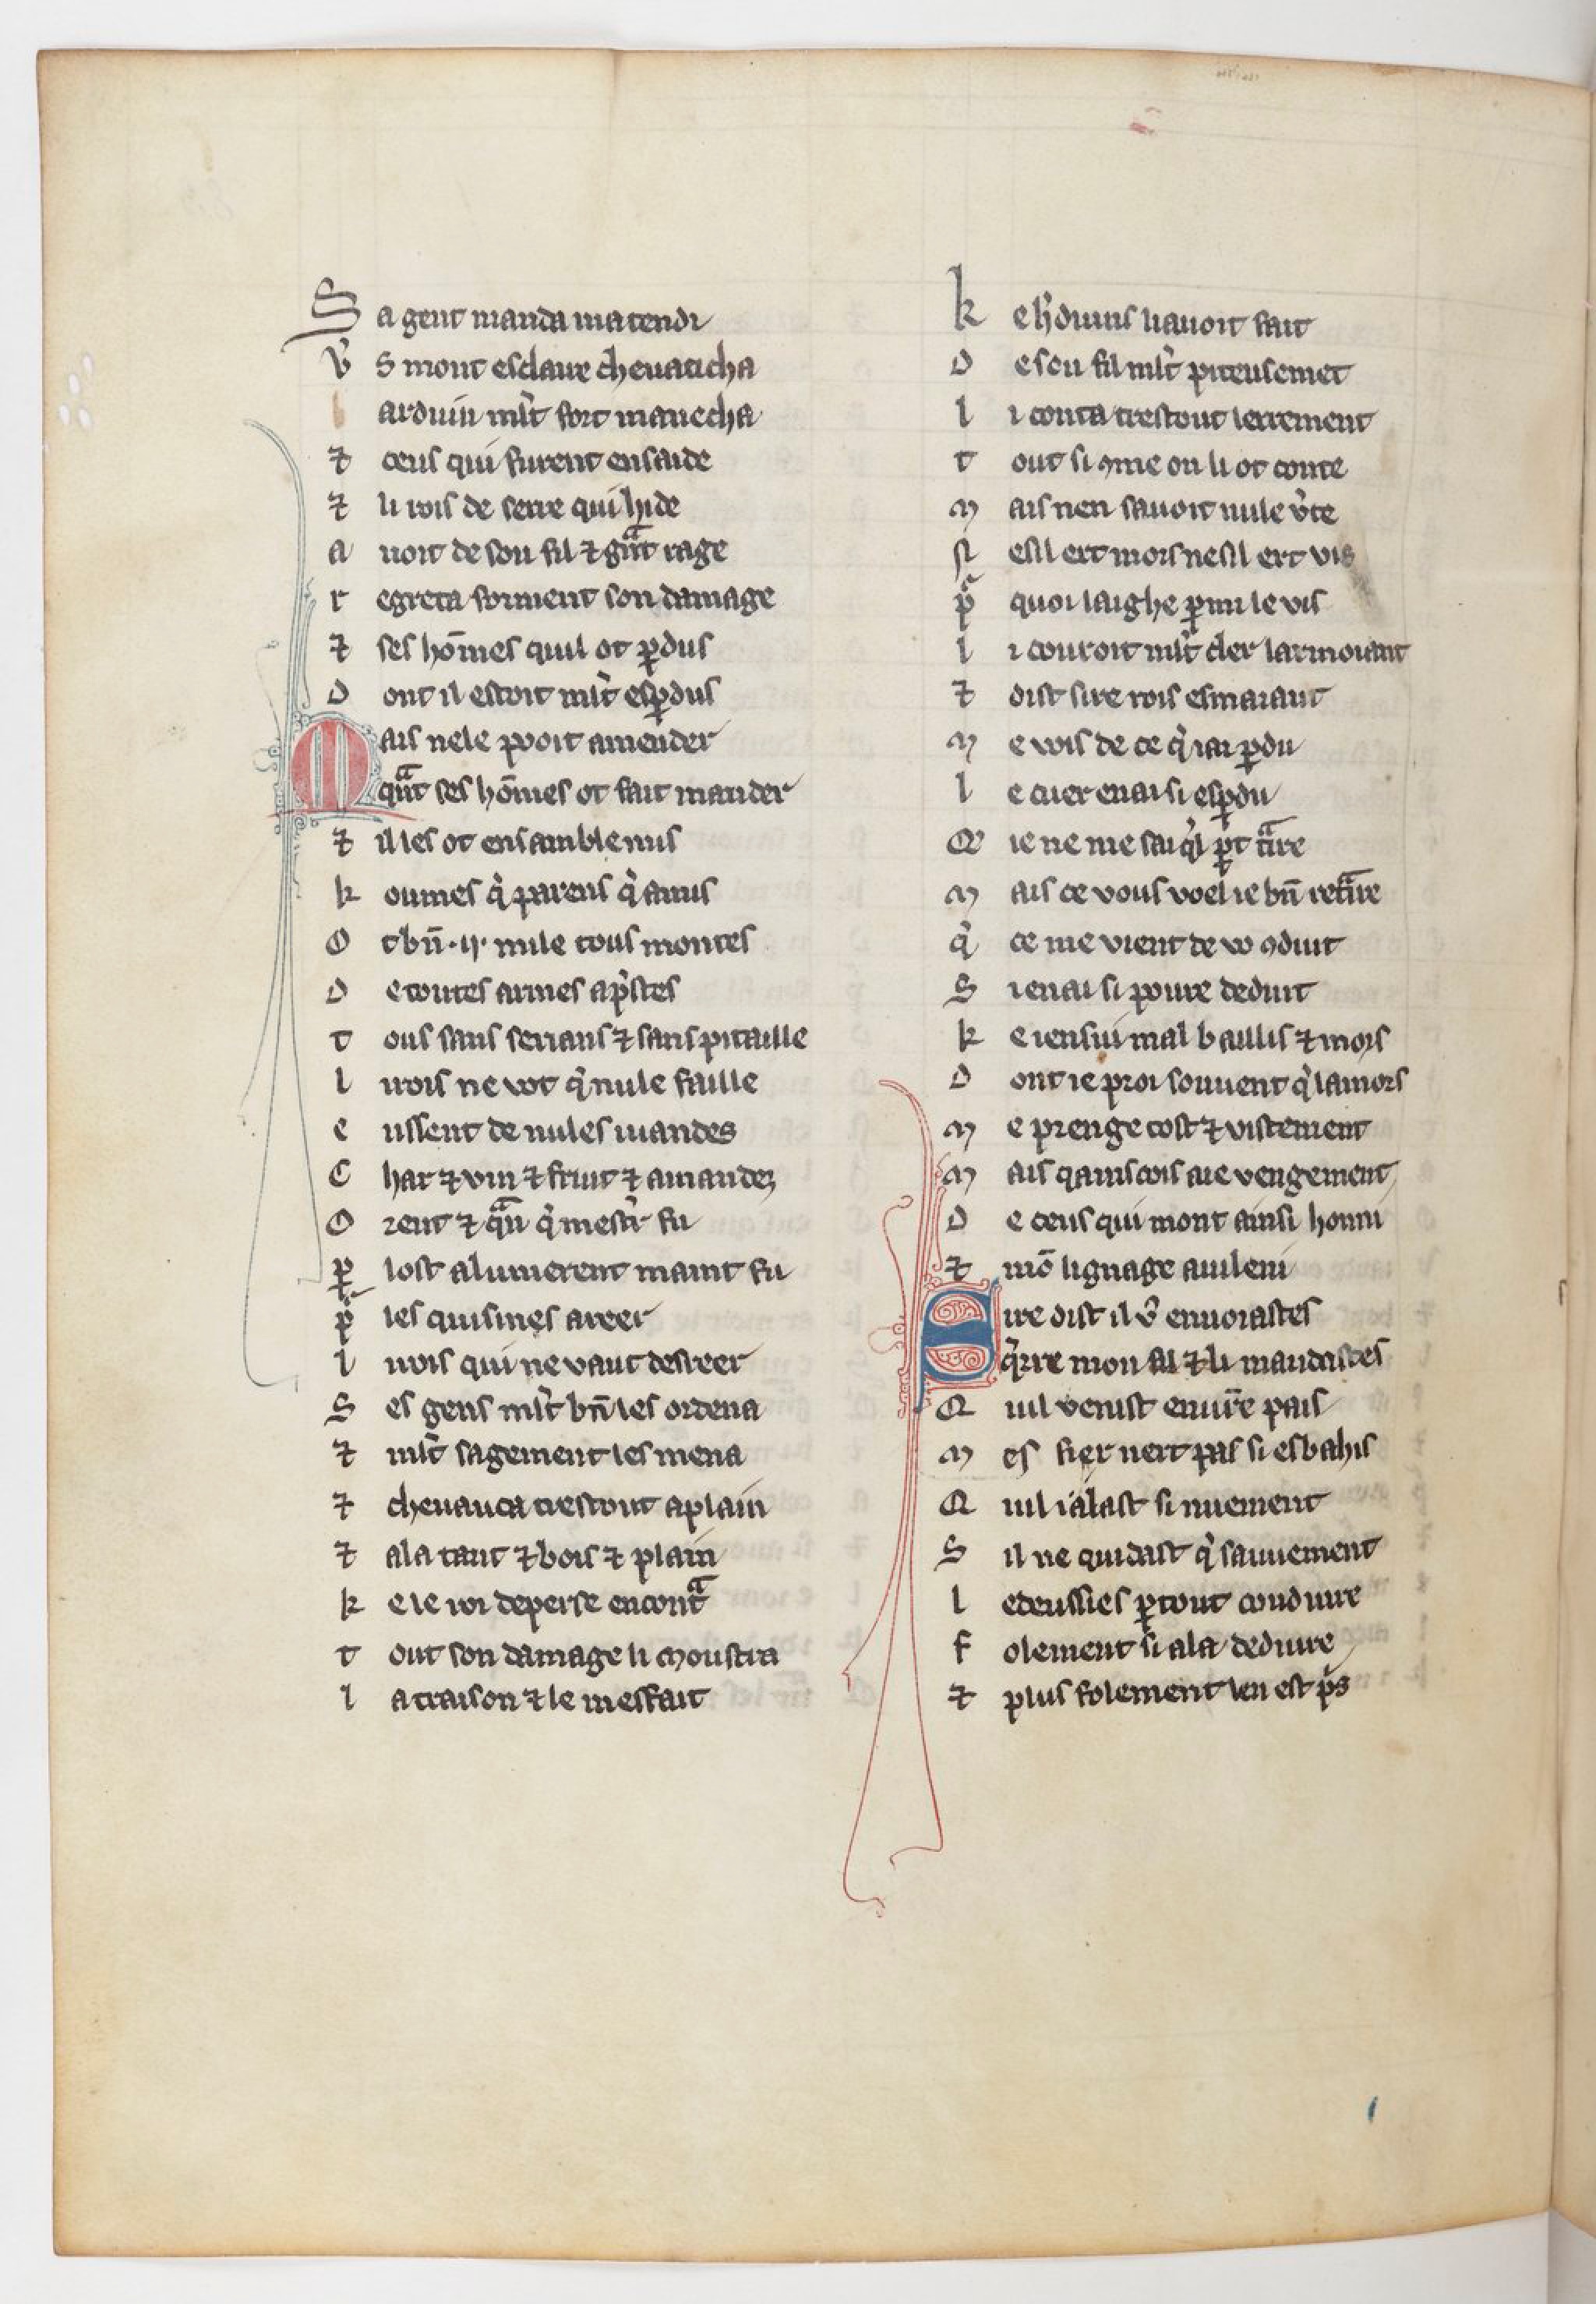 S a gent manda ma tendi
V̾ s mont esclaire cheuaucha
l arduin ml̃t fort manecha
⁊ ceus qui furent ensaide
⁊ li rois de serre qui hide
a uoit de son fil ⁊ gͣnt rage
r egreta forment son damage
⁊ ses hōmes quil ot ꝑdus
D ont il estoit ml̃t esꝑdus
M ais nele pooit amender
qͣnt ses hōmes ot fait mander
⁊ il les ot ensamble mis
k oumes q̾ parens q̾ amis
O t bñ .ij. mile tous montes
D e toutes armes ap̾stes
t ous sans serians ⁊ sans pitaille
l i rois ne vot q̾ nule faille
e ussent de nules uiandes
C har ⁊ vin ⁊ fruit ⁊ amandez
O rent ⁊ qͣn q̾ mestr̾ fu
ꝑ lost alumerent maint fu
pͬ les quisines areer
l i rois qui ne vaut desreer
S es gens ml̃t bñ les ordena
⁊ ml̃t sagement les mena
⁊ cheuauca trestout a plain
⁊ ala tant ⁊ bois ⁊ plain
k e le roi de perse encontͣ
t out son damage li moustra
l a traison ⁊ le mesfait
k e h̾duins li auoit fait
D e son fil ml̃t piteusemēt
l i conta trestout lerrement
t out si ꝯme on li ot conte
M ais nen sauoit nule v̾te
si esil ert mors ne sil ert vis
pͬ quoi laighe ꝑmi le vis
l i couroit ml̃t cler larmoiant
⁊ dist sire rois esmaiant
M e vois de ce q̾ iai ꝑdu
l e cuer en ai si esꝑdu
Q̃ ie ne me sai q̾l ꝑt tͣire
M ais ce vous voel ie bñ retͣire
q̾ ce me vient de vo ꝯduit
S i en ai si poure deduit
k e ien sui mal baillis ⁊ mors
D ont ie proi souuent q̾ la mors
M e prenge tost ⁊ vistement
M ais qanscois aie vengement
D e ceus qui mont ainsi honni
⁊ mō lignage auileni
S ire dist il v̾ enuoiastes
q̾rre mon fil ⁊ li mandastes
Q uil venist en ur̄e pais
M es fier nert pas si esbahis
Q uil i alast si nuement
S il ne quidast q̾ sauuement
l e deussies ꝑtout conduire
f olement si ala deduire
⁊ plus folement len est p̾s